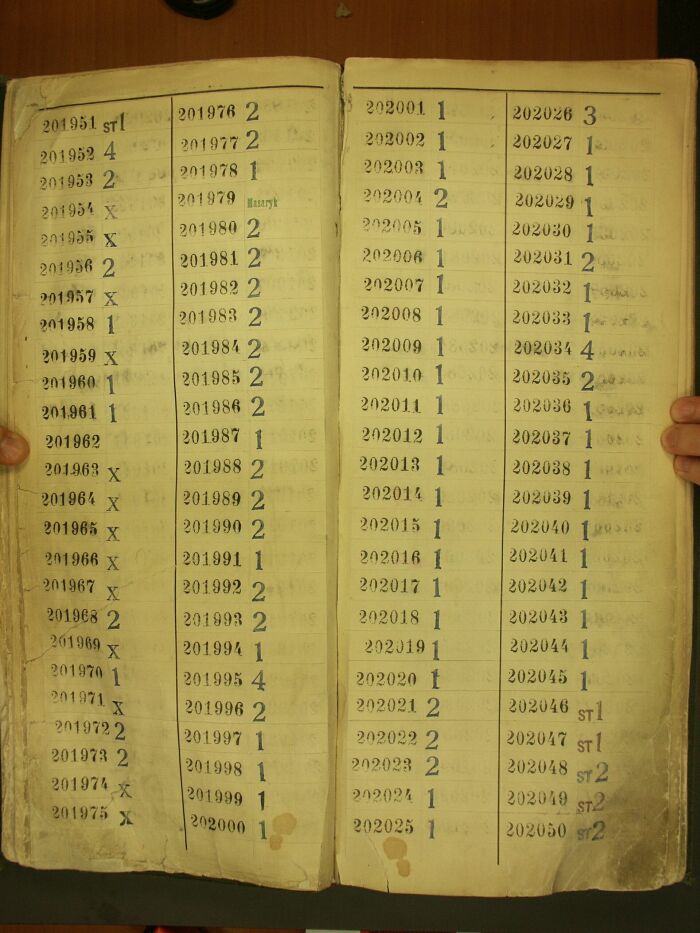 201951 ST1
201952 4
201953 2
201954 X
201955 X
201956 2
201957 X
201958 1
201959 X
201960 1
201961 1
201962
201963 X
201964 X
201965 X
201966 X
201967 X
201968 2
201969 X
201970 1
201971 X
201972 2
201973 2
201974 X
201975 X
201976 2
201977 2
201978 1
201979 Masaryk
201980 2
201981 2
201982 2
201983 2
201984 2
201985 2
201986 2
201987 1
201988 2
201989 2
201990 2
201991 1
201992 2
201993 2
201994 1
201995 4
201996 2
201997 1
201998 1
201999 1
202000 1
202001 1
202002 1
202003 1
202004 2
202005 1
202006 1
202007 1
202008 1
202009 1
202010 1
202011 1
202012 1
202013 1
202014 1
202015 1
202016 1
202017 1
202018 1
202019 1
202020 1
202021 2
202022 2
202023 2
202024 1
202025 1
202026 3
202027 1
202028 1
202029 1
202030 1
202031 2
202032 1
202033 1
202034 4
202035 2
202036 1
202037 1
202038 1
202039 1
202040 1
202041 1
202042 1
202043 1
202044 1
202045 1
202046 ST1
202047 ST1
202048 ST2
202049 ST2
202050 ST2